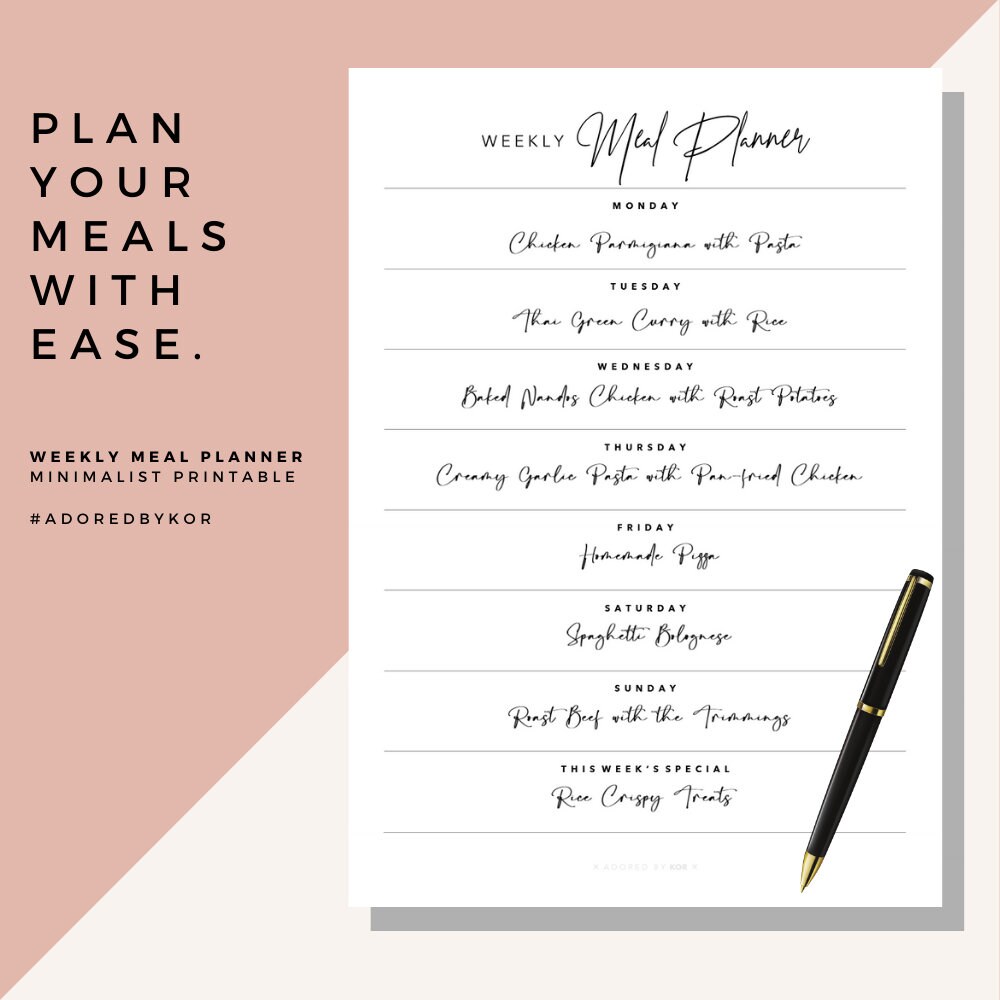 PLAN
YOUR
MEALS
WITH
EASE.
WEEKLY MEAL PLANNER
MINIMALIST PRINTABLE
#ADOREDBYKOR
WEEKLY Meal Planner
MONDAY
Chicken Parmigiana with Pasta
TUESDAY
Thai Green Curry with Rice
WEDNESDAY
Baked Nandos Chicken with Roast Potatoes
THURSDAY
Creamy Garlic Pasta with Pan-fried Chicken
FRIDAY
Homemade Pizza
SATURDAY
Spaghetti Bolognese
SUNDAY
Roast Beef with the Trimmings
THIS WEEK'S SPECIAL
Rice Crispy Treats
ADORED BY KOR